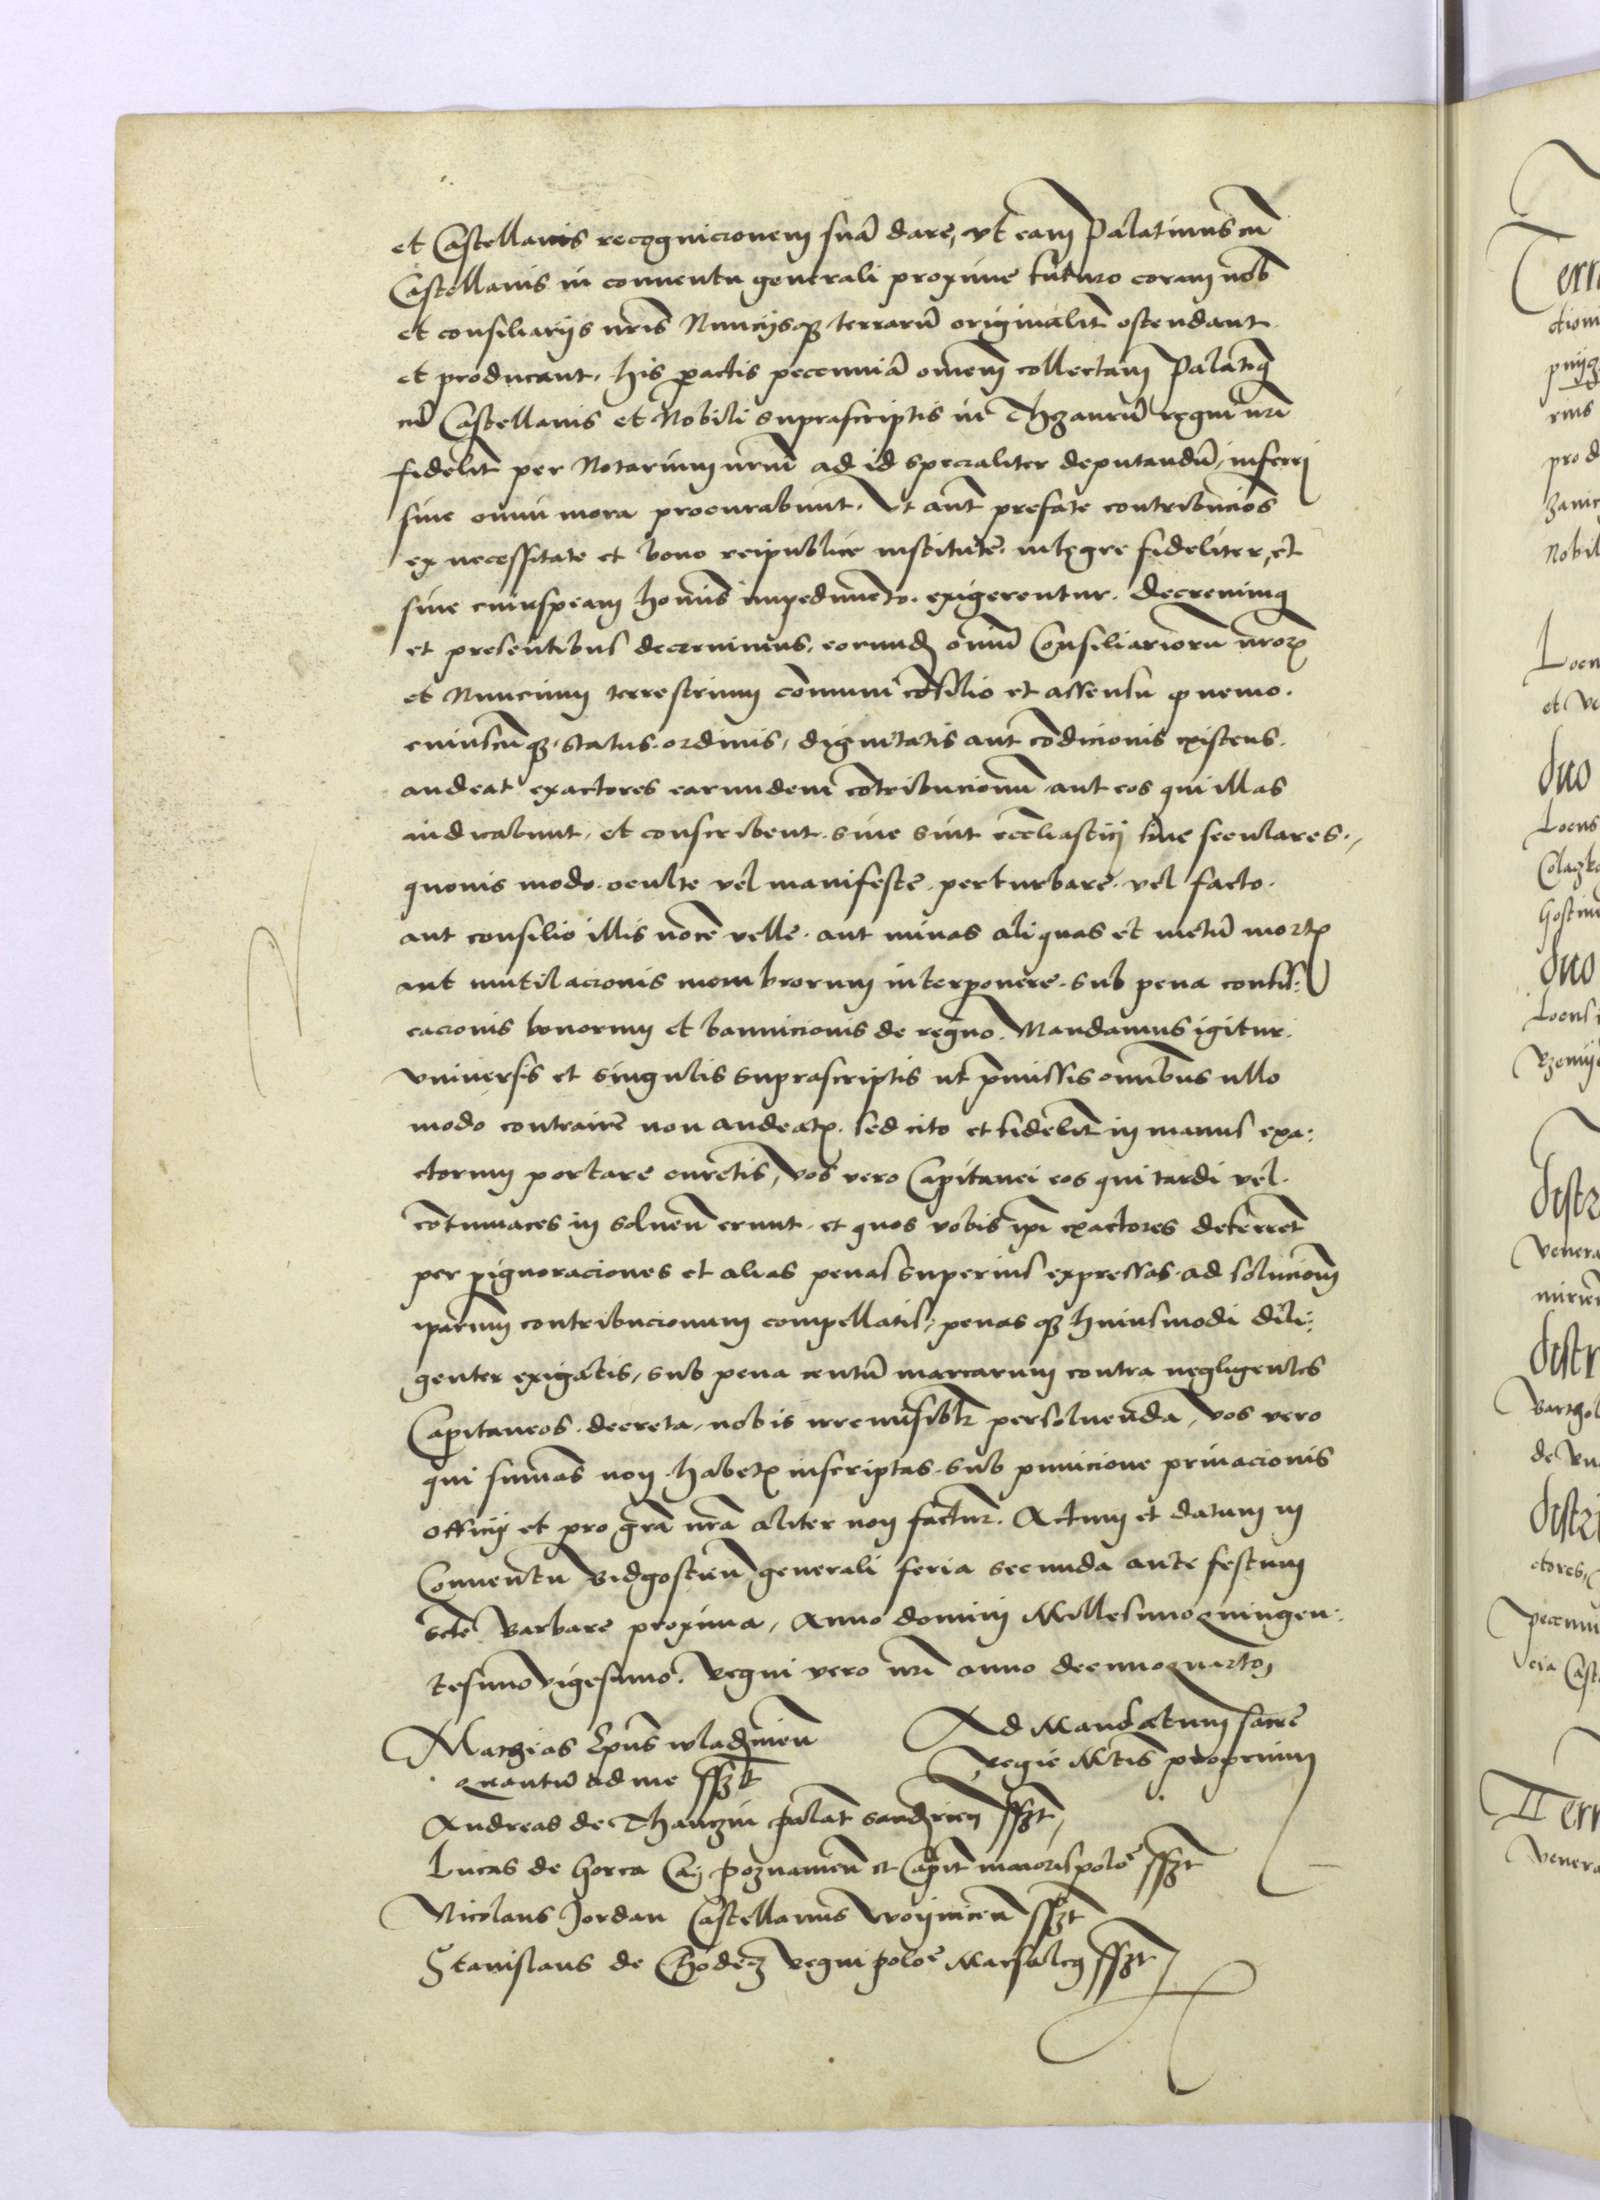 et Castellanis recognicionem suā dare, vt eam Palatinus cū
Castellanis in conuentu generali proxime futuro coram nob̄
et consiliarijs nr̄is Nuncijsqʒ terrarū originalit̄ ostendant
et producant, his pactis pecunniā om̄em collectam Palatinꝰ
cū Castellanis et Nobili suprascriptis in Thezaurū regni nr̄i
fidelit̄ per Notarium nr̄m ad id specialiter deputandū, inferri
sine omni mora procurabunt. Vt aut̄ prefate contribucioēs
ex necessitate et bono reipublice institute. integre fideliter, et
sine cuiuspiam hom̄is impedimēto. exigerentur. Decreuimꝰ
et presentibus decernimus, eorundē om̄iū Consiliariorū nr̄oꝝ
et Nuncium terrestrium com̄uni cōsilio et assensu ꝙ nemo.
cuiuscūqʒ status. ordinis, dignitatis aut cōdicionis existens.
audeat exactores earundem cōtribucionū aut eos qui illas
indicabunt, et conscribent. siue sint eccl̄iastici siue seculares.
quouis modo. oculte vel manifeste. perturbare. vel facto.
aut consilio illis nocē velle. aut minas aliquas et metū mortꝭ
aut mutilacionis membrorum interponere. sub pena confis:
cacionis bonorum et bannicionis de regno. Mandamus igitur.
vniuersis et singulis suprascriptis ut p̄missis om̄ibus ullo
modo contraire non audeatꝭ. sed cito et fidelit̄ in manus exa:
ctorum portare curetis, vos vero Capitanei eos qui tardi vel.
cōtumaces in soluen̄ erunt. et quos vobis ip̄i exactores deferrēt
per pignoraciones et alias penas superius expressas. ad solucionē
ip̄arum contribucionum compellatis, penas qʒ huiusmodi dili:
genter exigatis, sub pena centū marcarum contra negligentes
Capitaneos. decreta, nobis irremisibl̄r persoluenda, vos vero
qui summas non habetꝭ inscriptas. sub punicione priuacionis
officij et pro gr̄a nr̄a aliter non factur̄. Actum et datum in
Conuentu Bidgostien̄ generali feria secunda ante festum
scte Barbare proxima, Anno domini Millesimo quingen:
tesimo vigesimo. Regni vero nr̄i anno decimoquarto
Mathias Ep̄us wladz̄mien̄
quantū ad me sszt
Andreas de Thanczin palat̄ sandz̄ien̄ sszt,
Lucas de Gorca Ca: poznanien̄ et Capit̄ maioris polo͞e sszt
Nicolaus Jordan Castellanus woijnicen̄ sszt
Stanislaus de Chodecz regni polo͞e Marsalcꝰ sszt
Ad Mandatum sacre
regie Mtis proprium